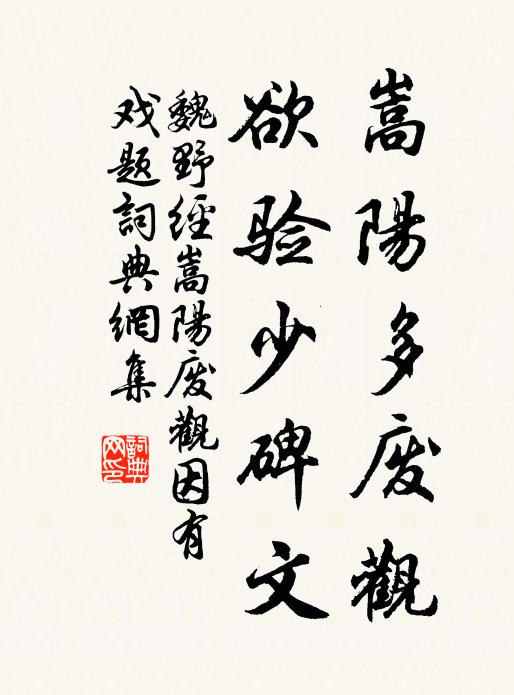 嵩陽多废觀
欲验少碑文
魏野經嵩陽废觀因有
戏题詞典網集
詞典網印